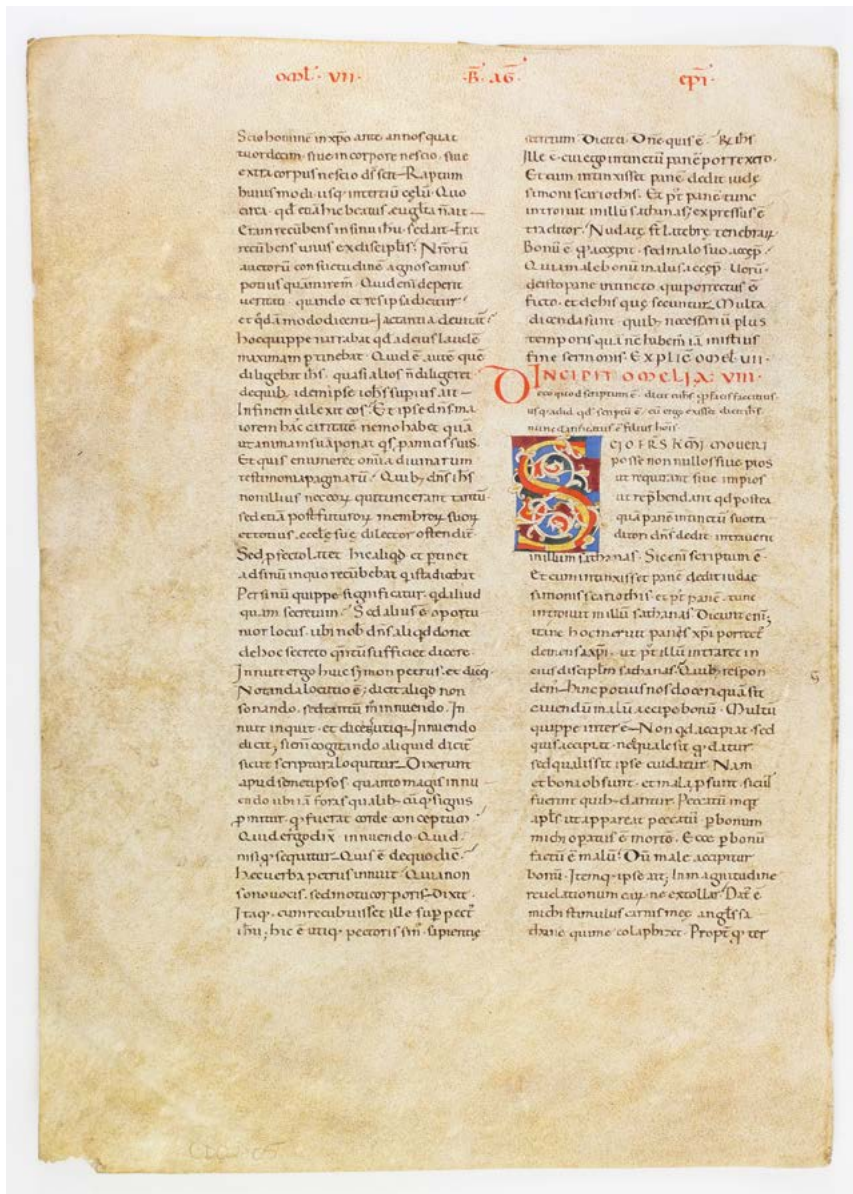 omł· VII· B̄· AḠ· ep̄i·
Scio hominē in xp̄o ante annos quat
tuordecim· siue in corpore nescio· siue
extra corpus nescio d̄s scit Raptum
huius modi usq· in tertiū cęlū· Quo
circa· qd̄ etiā hic beatus euḡlta n̄ ait
Eratn recūbens in sinu ih̄u· sed ait Erat
recūbens unus ex disciplīs· Nr̄orū
auctorū consuetudinē agnoscamus
potius quā mirem̄· Quid enī deperit
ueritati· quando et res ipsa dicitur
et qd̄ā modo dicenti Jactantia deuitat̄
hoc quippe narrabat qd̄ ad eius laudē
maximam p tinebat· Quid ē autē quē
diligebat ih̄s· quasi alios n̄ diligeret
de quib; idem ipse ioh̄s supius ait
In finem dilexit eos· Et ipse dn̄s ma
iorem hac caritatē nemo habet quā
ut animam suā ponat q̄s p amicis suis·
Et quis enumeret om̄ia diuinarum
testimonia paginarū· Quib; dn̄s ih̄s
non illius nec eoꝝ qui tunc erant tantū·
sed etiā post futuroꝝ membroꝝ suoꝝ
et totius ęccłę suę dilector ostendit·
Sed p fecto latet hic aliqd̄ et ptinet
ad sinū in quo recūbebat q ista dicebat
Per sinū quippe significatur· qd̄ aliud
quam secretum· Sed alius ē oportu
nior locus· ubi nob dn̄s aliqd donet
de hoc secreto q̄ntū sufficiet dicere·
Jnnuit ergo huic symon petrus· et dic̄·
Notanda locutio ē; dicit aliqd non
sonando· sed tantū m̄ innuendo· In
nuit inquit· et dicit utiq; Innuendo
dicit; si enī cogitando aliquid dicit̄
sicut scriptura loquitur Dixerunt
apud semetipsos· quanto magis innu
endo ubi iā foras qualib; cūq· signis
p mitur· q fuerat corde conceptum
Quid ergo dix̄ innuendo· Quid·
nisi q sequitur Quis ē de quo dic̄·
hec uerba petrus innuit· Quia non
sono uocis· sed motu corporis Dixit·
Itaq· cum recubuisset ille sup pect̄
ih̄u; hic ē utiq· pectoris sin̄· sapientię
secretum· Dicit ei· Dn̄e quis ē· R̄ ih̄s
Jlle ē· cui ego intinctū panē porrexero·
Et cum intinxisset panē dedit iudę
simoni scariothis· Et p̄t panē tunc
introiuit in illū sathanas; expressus ē
traditor· Nudatę st̄ latebrę tenebraꝝ
Bonū ē q accepit· sed malo suo accep̄
Quia male bonū malus accep̄· Uerū·
de isto pane intincto qui porrectus ē
ficto· et de his quę secuntur Multa
dicenda sunt· quib; necessariū plus
temporis quā n̄c habem̄ iā in istius
fine sermonis· EXPLIC̄ OMEL· VII·
INCIPIT OMELIA: VIII·
De eo quod scriptum ē· dicit ei ih̄s· q facis fac citius·
usq· ad id· qd̄ scriptū ē· cū ergo exisset dicit ih̄s·
nunc clarificatus ē filius hōis
SCIO FR̄S KM̄I MOUERI
posse non nullos siue pios
ut requirant siue impios
ut rep̄hendant qd̄ postea
quā panē intinctū suo tra
ditori dn̄s dedit· intrauerit
in illum sathanas· Sic enī scriptum ē·
Et cum intinxisset panē dedit iudae
simonis scariothis· et p̄t panē· tunc
introiuit in illū sathanas· Dicunt enī;
itane hoc meruit panis xp̄i porrect̄
de mensa xp̄i· ut p̄t illū intraret in
eius disciplm̄ sathanas· Quib; respon
dem̄ hinc potius nos doceri quā sit
cauendū malū accipe bonū· Multū
quippe inter ē Non qd̄ accipiat· sed
quis accipiat· nec quale sit q datur
sed qualis sit ipse cui datur· Nam
et bona obsunt· et mala p sunt· sicut
fuerint quib; dantur· Peccatū inqt
apłs ut appareat peccatū· p bonum
michi operatus ē mortē· Ecce p bonū
factū ē malū· Dū male accipitur
bonū· Itemq· ipse ait; In magnitudine
reuelationum eaꝝ ne extollar· Dat̄ ē
michi stimulus carnis meę anḡls sa
thanę qui me colaphizet· Propt̄ q ter